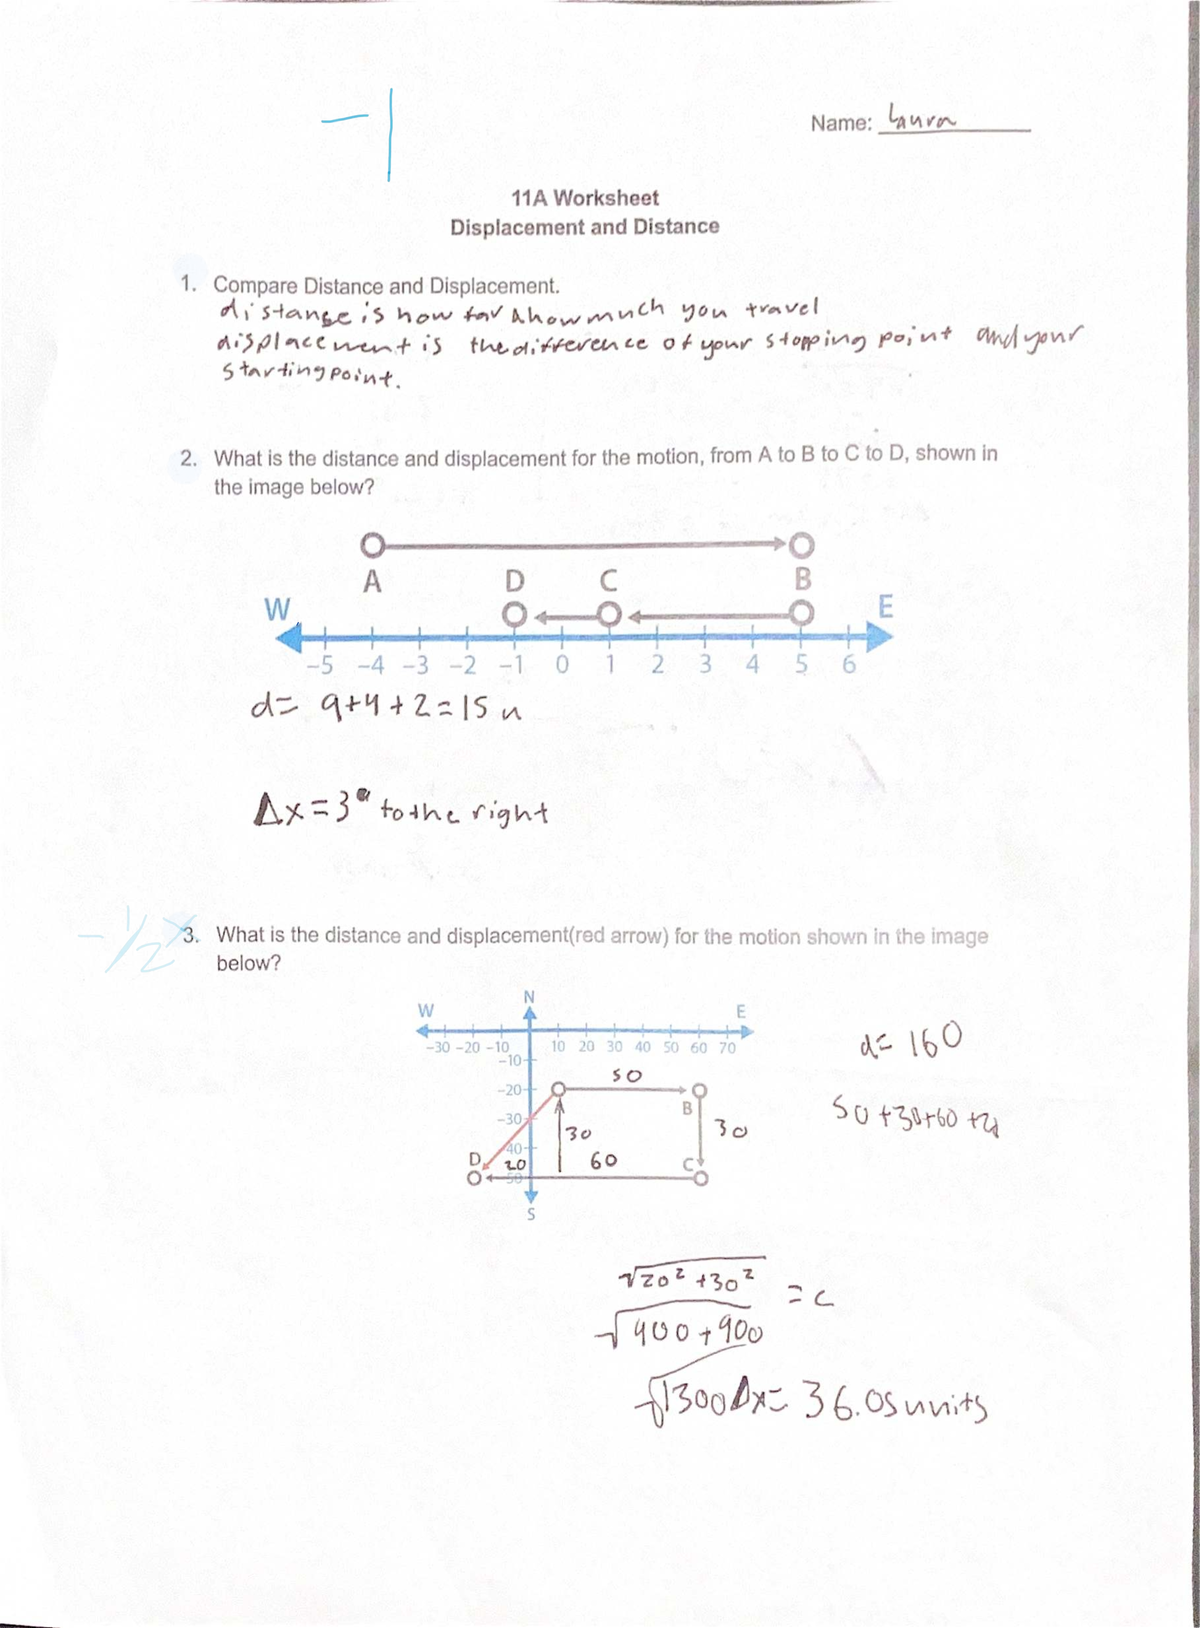 -1
Name: Laura
11A Worksheet
Displacement and Distance
1. Compare Distance and Displacement.
distance is how far & how much you travel
displacement is the difference of your stopping point and your
starting point.
2. What is the distance and displacement for the motion, from A to B to C to D, shown in
the image below?
A D C B
W E
-5 -4 -3 -2 -1 0 1 2 3 4 5 6
d= 9+4+2=15 u
Δx=3u to the right
-1/2
3. What is the distance and displacement(red arrow) for the motion shown in the image
below?
N
W E
-30 -20 -10 10 20 30 40 50 60 70
-10
d= 160
50
-20
B
-30
30 30
50+30+60+20
40
D 20 60 C
50
S
√20²+30² = c
√400+900
√1300 Δx= 36.05 units